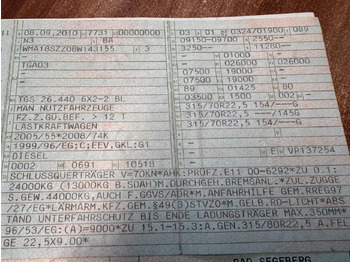 08.09.2010 7731 00000000 03 01 0324701900 089
N3 BA 09150-09700 2550--
WMA18SZZ0BW143155 3 3250-- 11280--
— — 01000 —
TGA03 — 026000 — 026000
— 07500 19000 — —
— 07500 19000 — —
TGS 26.440 6X2-2 BL 89 01425 80
MAN NUTZFAHRZEUGE 03500 1500 002 —
FZ.Z.GÜ.BEF. > 12 T 315/70R22,5 154/---G
LASTKRAFTWAGEN 315/70R22,5 145---G
2005/55*2008/74K 315/70R22,5 154/
1999/96/EG;C;EEV,GKL:G1
DIESEL — — —
0002 0691 10518 EW VP137254
SCHLUSSQUERTRÄGER V=70KN*AHK:PRÜFZ.E11 00-6292*ZU 0.1:
24000KG (13000KG B.SDAH)M.DURCHGEH.BREMSANL.*ZUL.ZUGGE
S.GEW.44000KG,AUCH F.GGVS/ADR*M.ANFAHRHILFE GEM.RREG97
/27/EG*LÄRMARM.KFZ.GEM.§49(3)STVZO*M.GELB.RD-LICHT*ABS
TAND UNTERFAHRSCHUTZ BIS ENDE LADUNGSTRÄGER MAX.350MM*
96/53/EG:(A)=9000*ZU 15.1-15.3:A.GEN.315/80R22,5 A.FEL
GE 22,5X9.00*
BAD SEGEBERG